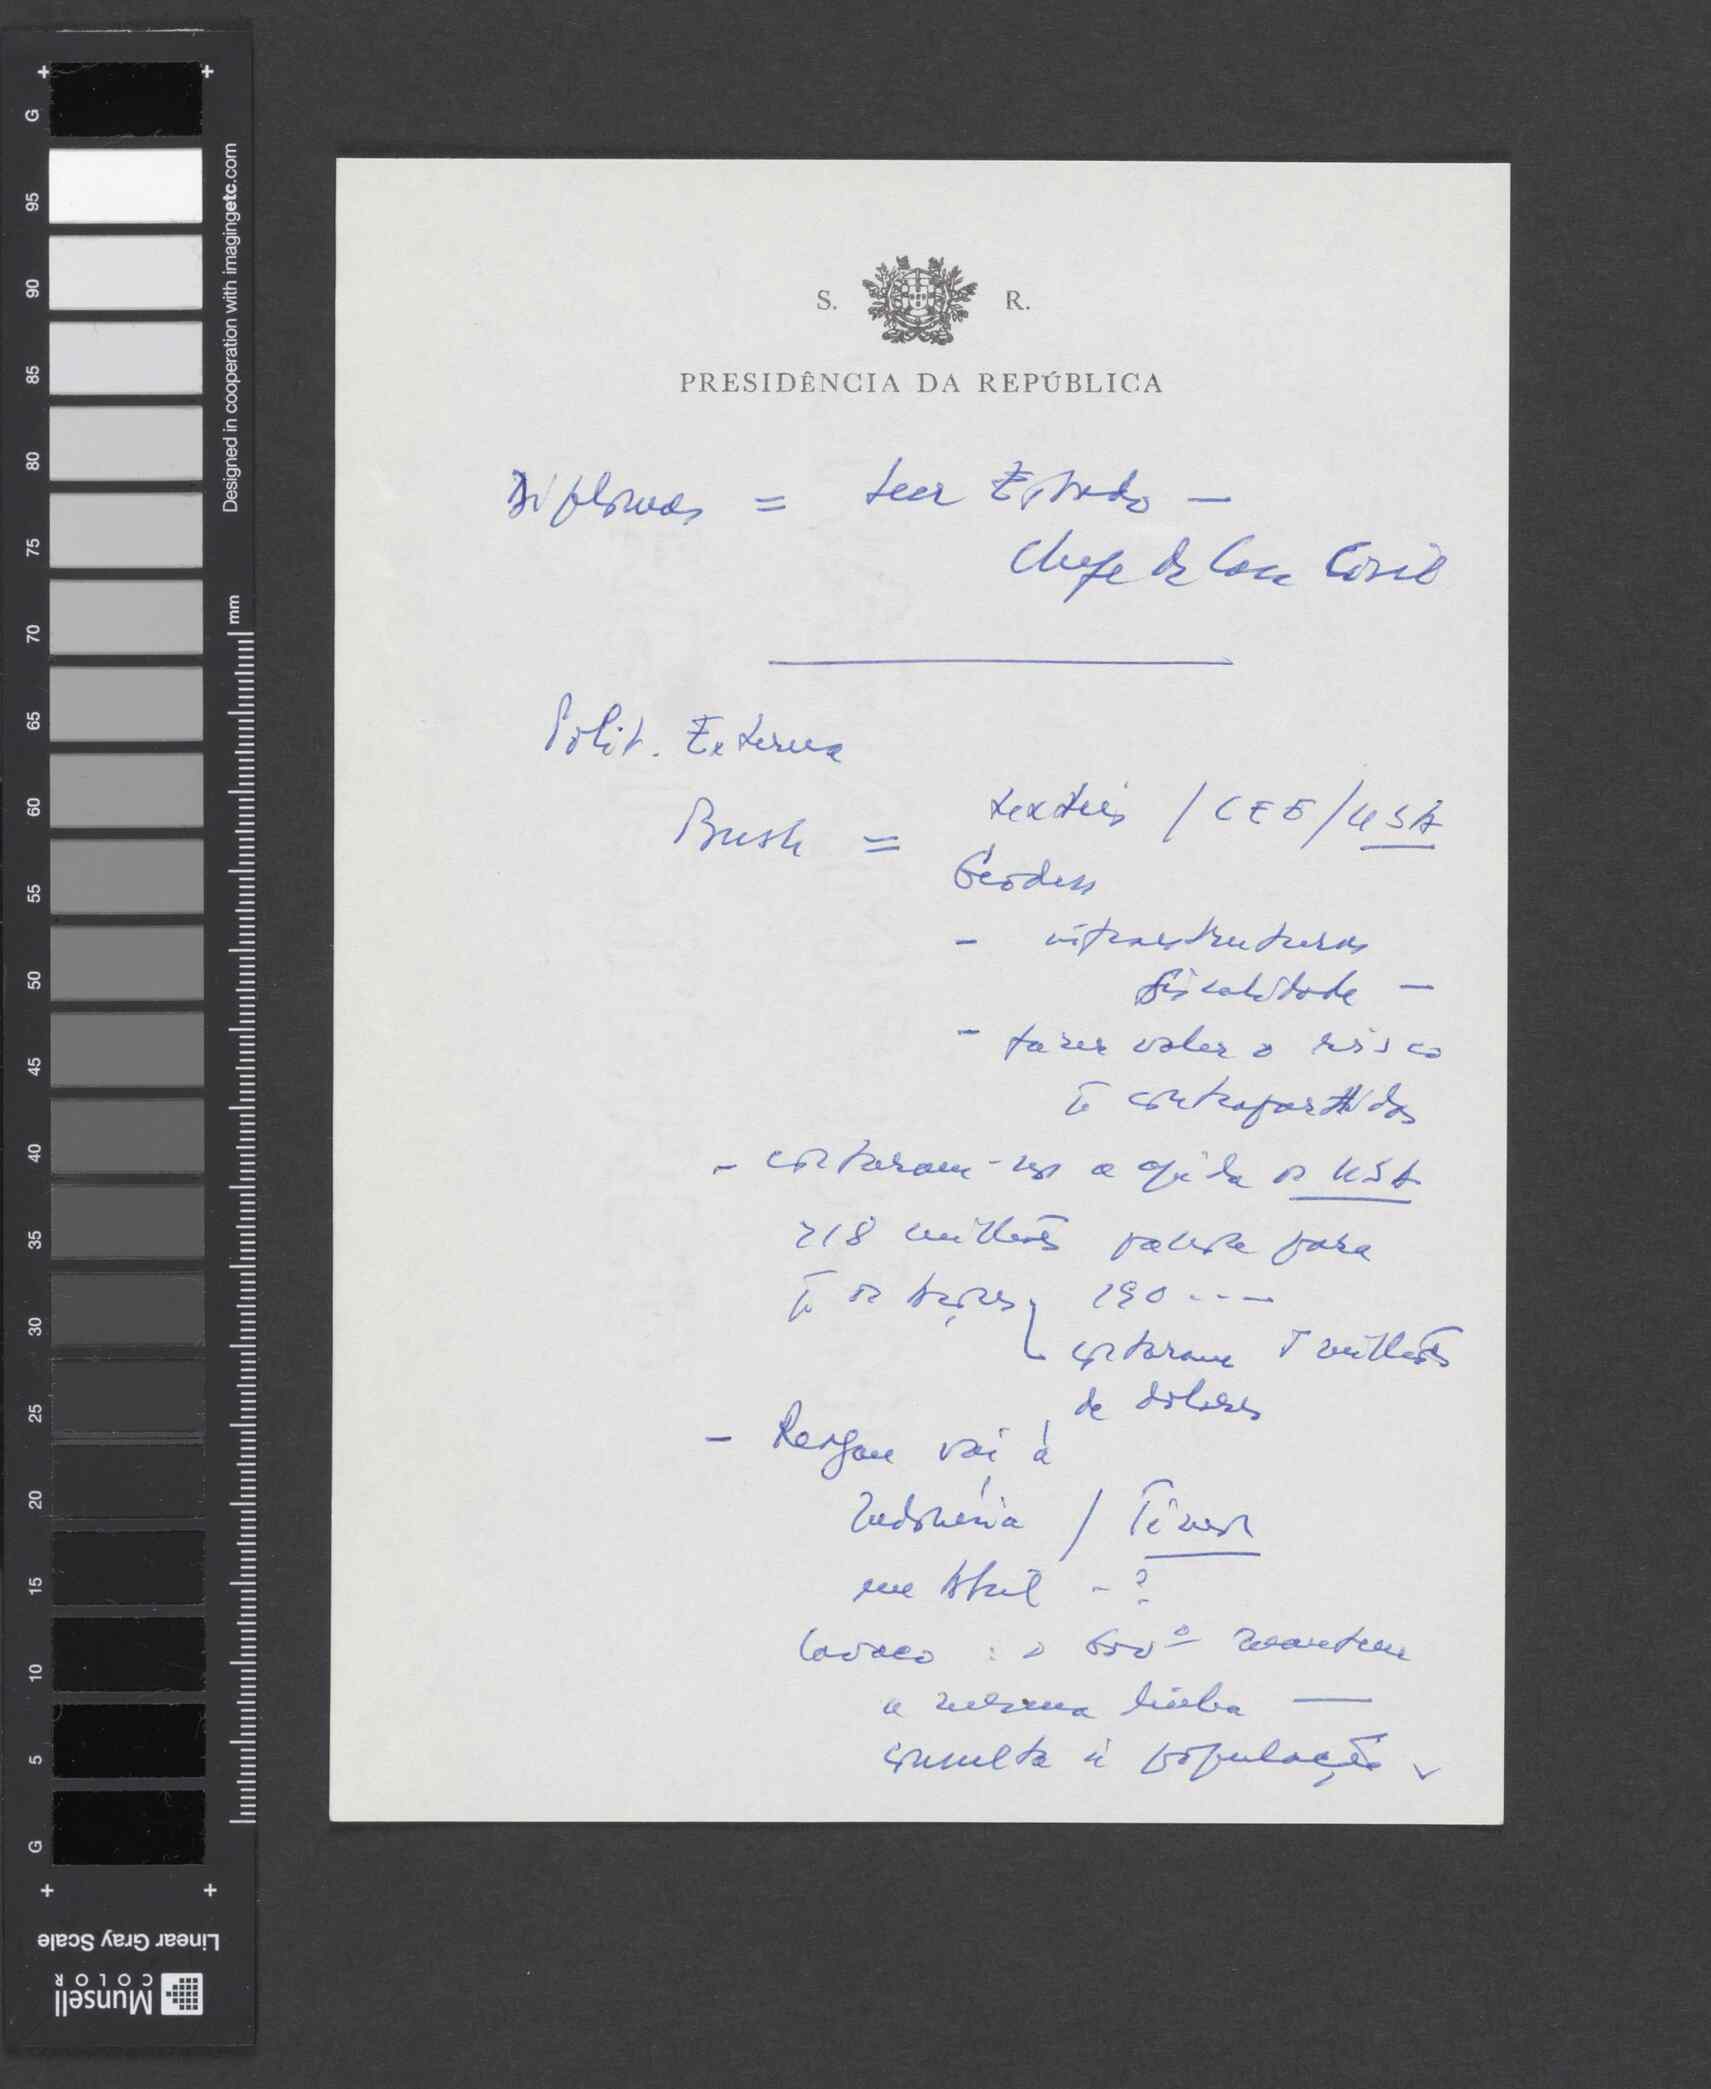 S. R.
PRESIDÊNCIA DA REPÚBLICA
Diplomas = Secr Estado –
Chefe da Casa Civil
Polit. Externa
Bush = texteis / CEE / USA
- infraestruturas
fiscalidade –
- fazer valer o risco
contrapartidas
- cortaram-nos a ajuda os USA
218 milhões para
os Açores 190 - - –
cortaram milhões
de dólares
- Reagan vai à
Indonésia / Timor
em Abril - ?
Cavaco : o Govº mantem
a mesma linha —
consulta à população
G
95
90
85
80
75
70
65
60
55
50
45
40
35
30
25
20
15
10
5
G
Designed in cooperation with imagingetc.com
mm
Linear Gray Scale
Munsell
COLOR